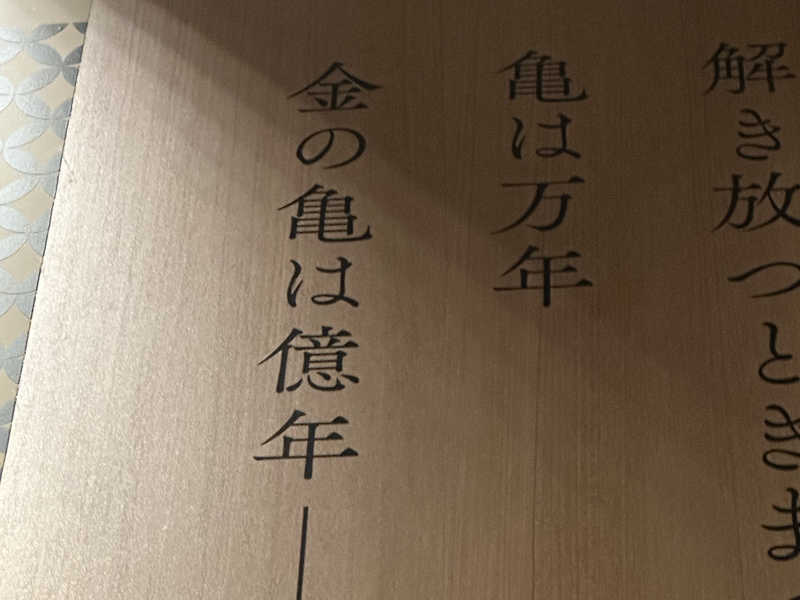 解き放つときま
亀は万年
金の亀は億年—